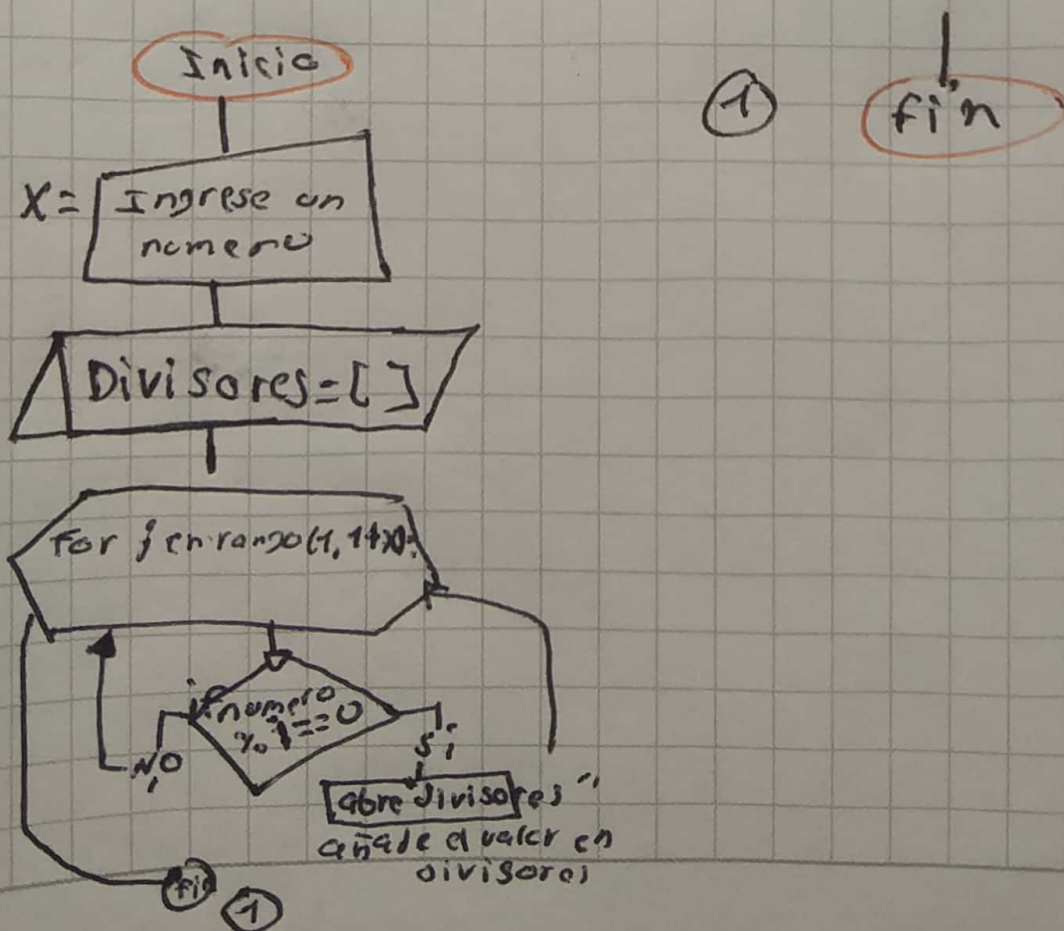 Inicio
X=
Ingrese un
numero
Divisores=[]
For j en rango(1, 1+x):
if numero
% j==0
NO
Si
abre divisores"
añade el valor en
divisores
fin
1
1
fin